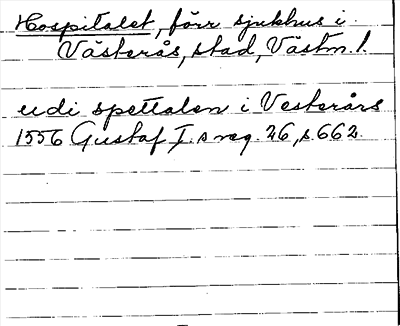 Hospitalet, förr sjukhus i
Västerås, stad, Västm. l.
udi spettalen i Vesterårs
1556 Gustaf I:s reg. 26, s. 662.